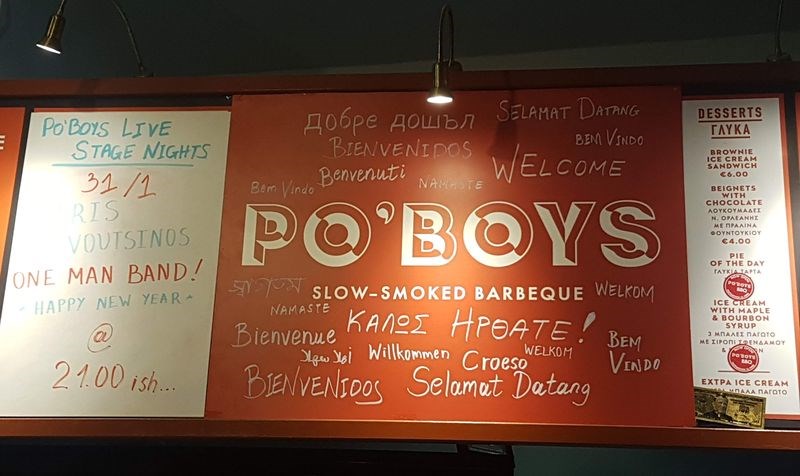 PO'BOYS LIVE
STAGE NIGHTS
31/1
RIS
VOUTSINOS
ONE MAN BAND!
- HAPPY NEW YEAR -
@
21.00 ish...
Добре дошъл
SELAMAT DATANG
BIENVENIDOS
BEM VINDO
Benvenuti
WELCOME
Bem Vindo
NAMASTE
PO'BOYS
SLOW-SMOKED BARBEQUE
WELKOM
NAMASTE
ΚΑΛΩΣ ΗΡΘΑΤΕ!
Bienvenue
BEM
VINDO
Willkommen
Croeso
WELKOM
BIENVENIDOS
Selamat Datang
DESSERTS
ΓΛΥΚΑ
BROWNIE
ICE CREAM
SANDWICH
€6.00
BEIGNETS
WITH
CHOCOLATE
ΛΟΥΚΟΥΜΑΔΕΣ
Ν. ΟΡΛΕΑΝΗΣ
ΜΕ ΠΡΑΛΙΝΑ
ΦΟΥΝΤΟΥΚΙΟΥ
€4.00
PIE
OF THE DAY
ΓΛΥΚΙΑ ΤΑΡΤΑ
PO'BOYS
BBQ
ICE CREAM
WITH MAPLE
& BOURBON
SYRUP
3 ΜΠΑΛΕΣ ΠΑΓΩΤΟ
ΜΕ ΣΙΡΟΠΙ ΣΦΕΝΔΑΜΟΥ
PO'BOYS
BBQ
EXTRA ICE CREAM
ΜΠΑΛΑ ΠΑΓΩΤΟ